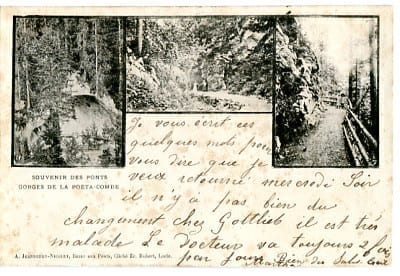 SOUVENIR DES PONTS
GORGES DE LA POËTA-COMBE
Je vous écrit ces
quelques mots pour
vous dire que je
veux retourné mercrodi Soir
il n'y a pas bien du
changement chez Gottlieb il est très
malade Le Docteur va toujours 2 fois
par jour Bien des Salut
A. JEANNERET-NICOLET, Bazar aux Ponts, Cliché Ed. Robert, Locle.